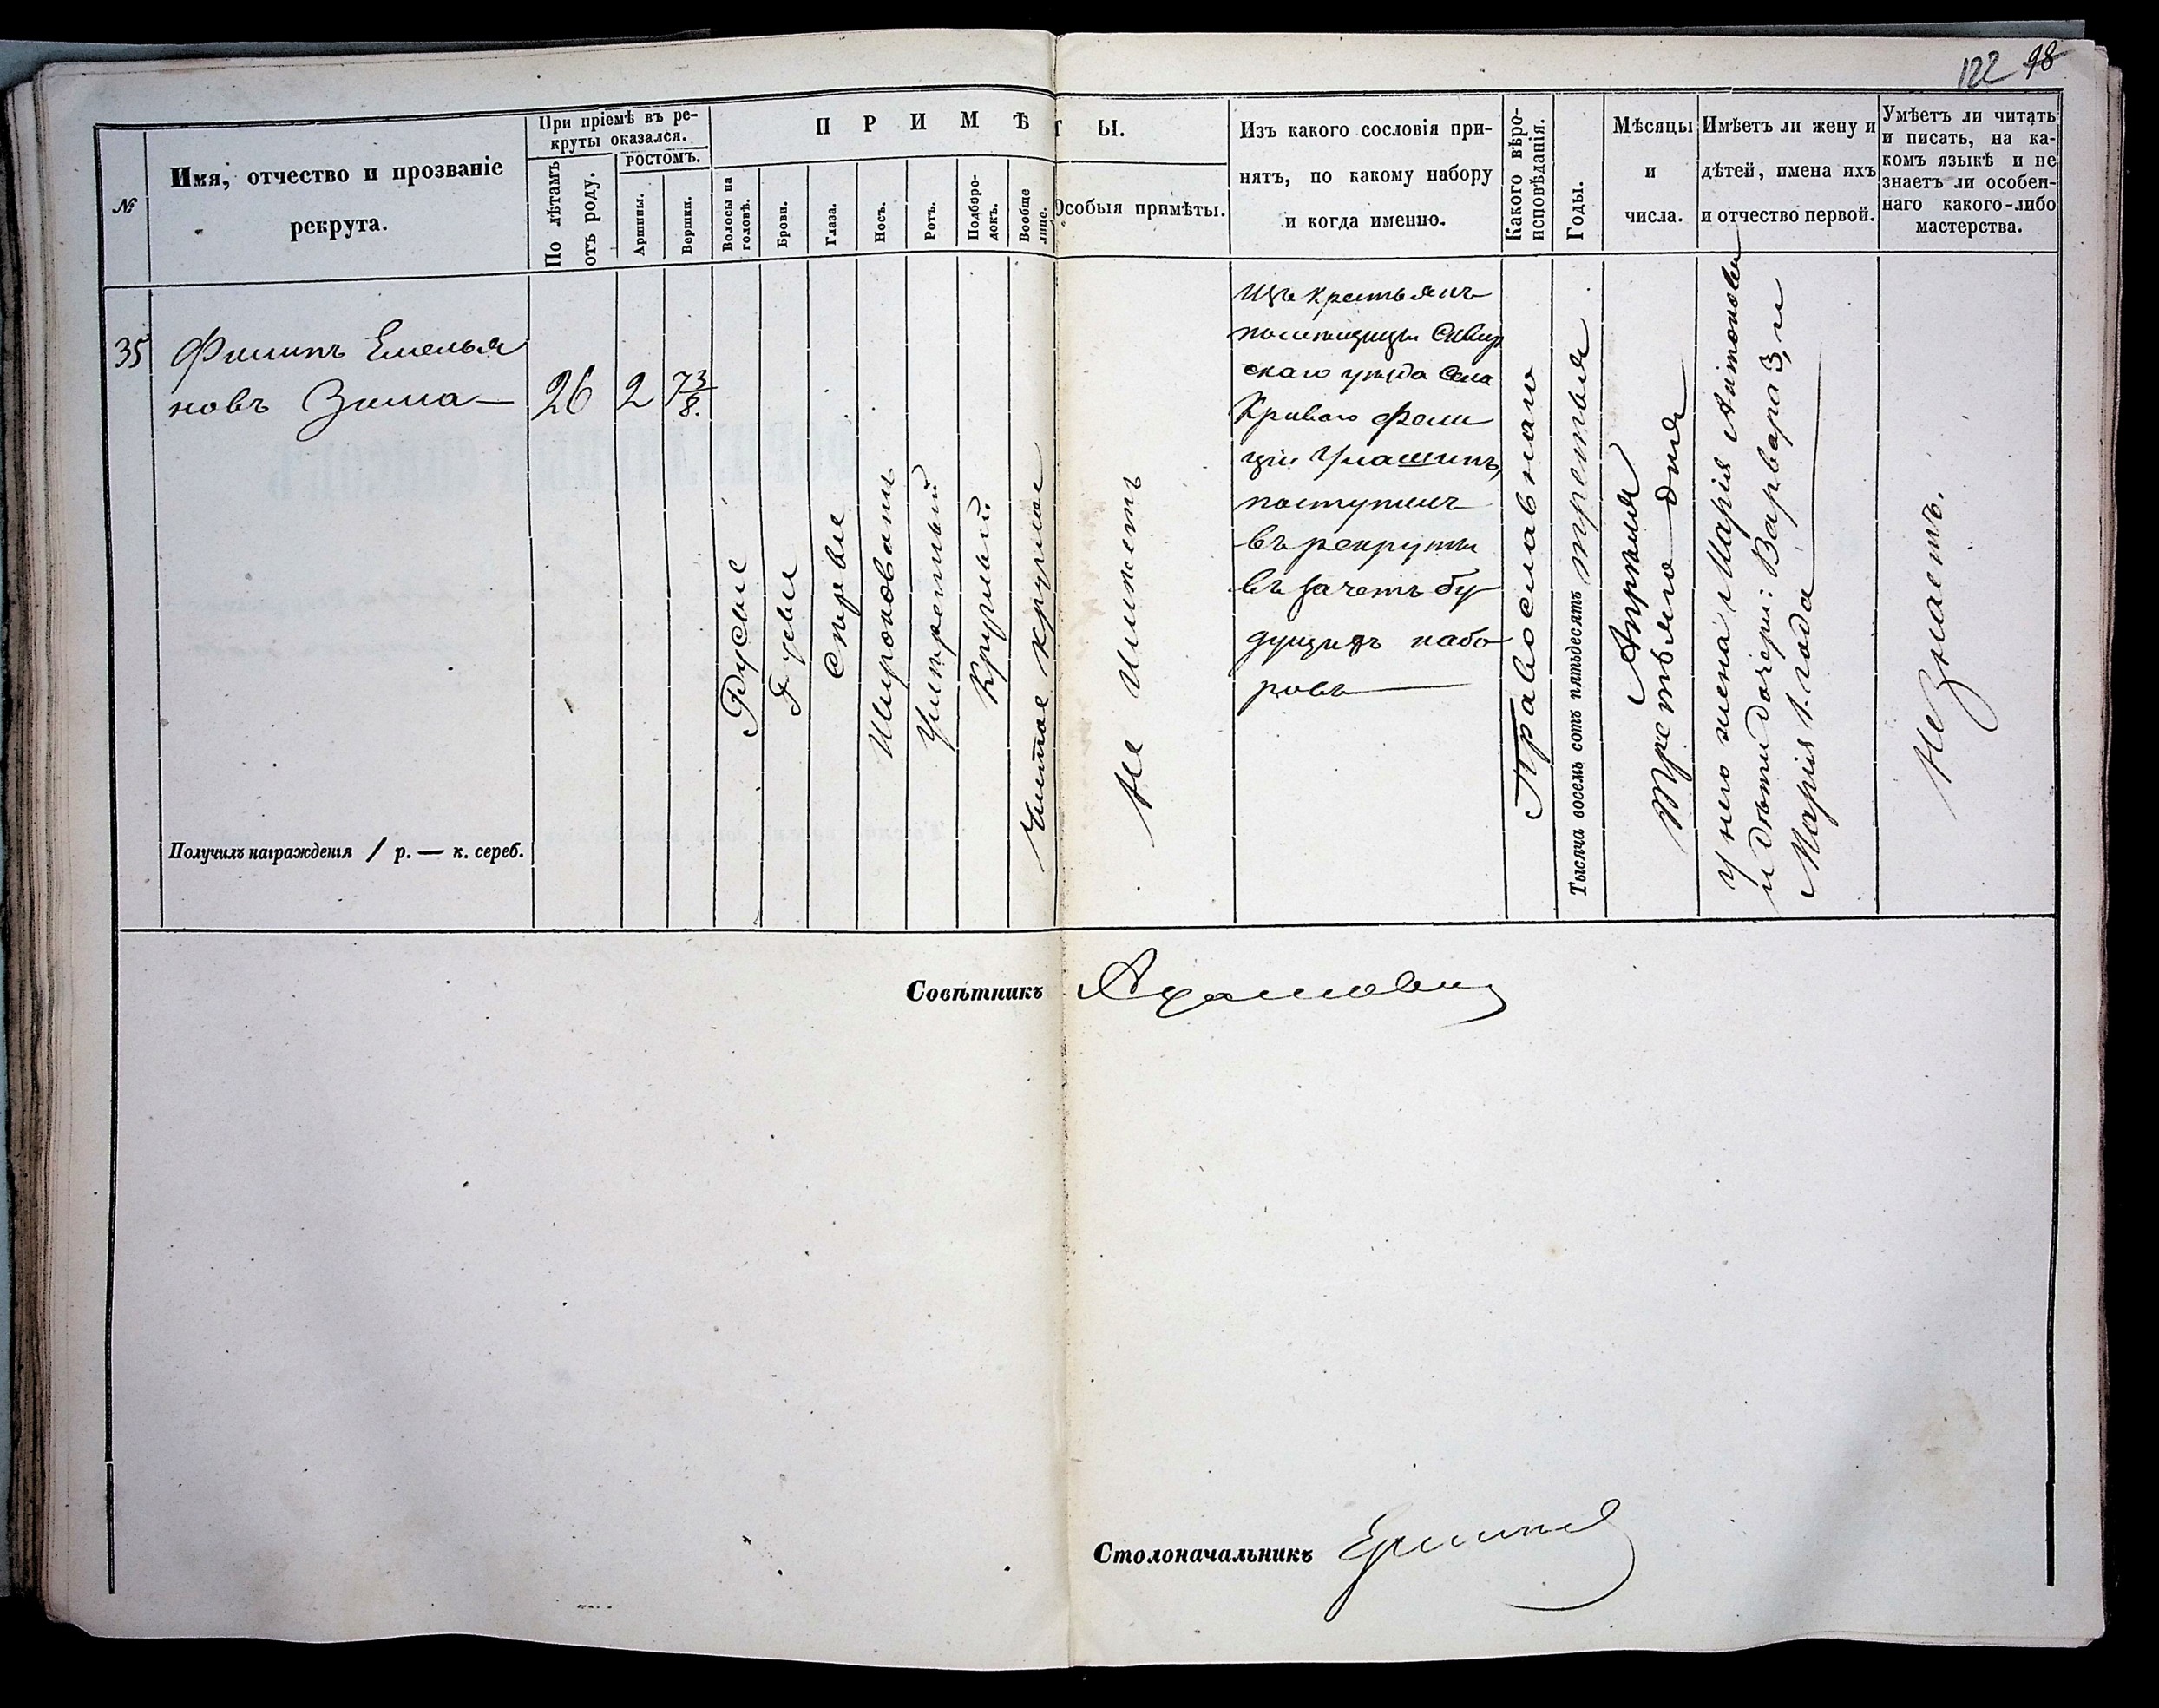 122 98
№
Имя, отчество и прозваніе
рекрута.
При пріемѣ въ ре-
круты оказался.
По лѣтамъ
отъ роду.
РОСТОМЪ.
Аршины.
Вершки.
ПРИМѢТЫ.
Волосы на
головѣ.
Брови.
Глаза.
Носъ.
Ротъ.
Подборо-
докъ.
Вообще
лице.
Особыя примѣты.
Изъ какого сословія при-
нятъ, по какому набору
и когда именно.
Какого вѣро-
исповѣданія.
Годы.
Мѣсяцы
и
числа.
Имѣетъ ли жену и
дѣтей, имена ихъ
и отчество первой.
Умѣетъ ли читать
и писать, на ка-
комъ языкѣ и не
знаетъ ли особен-
наго какого-либо
мастерства.
35
Филипъ Емелья
новъ Зима—
26
2
7 3/8.
Русые
Русые
Сѣрыя
Широковатъ
Умѣренный
Круглый
Чистое круглое
Не Имѣетъ
Изъ крестьянъ
помѣщицы Сквир
скаго уѣзда Села
Криваго Фели
ціи
поступилъ
въ рекруты
въ зачетъ бу
дущихъ набо
ровъ
Православнаго
Тысяча восемь сотъ пятьдесятъ третья
Апрѣля
третьяго дня
у него жена Марія Антонова
и дѣти дочери: Варвара 3, и
Марія 1. года
Не Знаетъ.
Получилъ награжденія / р. — к. сереб.
Совѣтникъ
Столоначальникъ